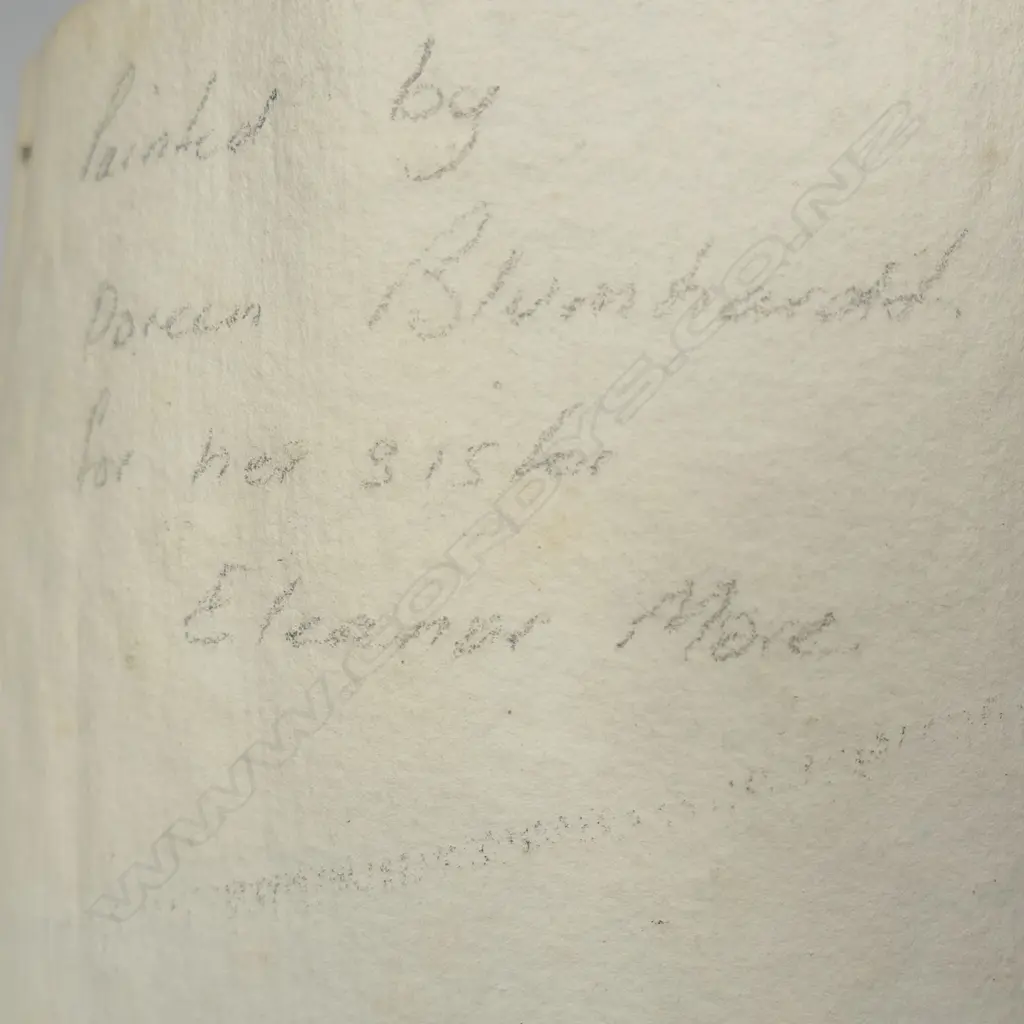 Painted by
Doreen Blumhardt.
for her sister
Eleanor More.
WWW.CORDYS.CO.NZ